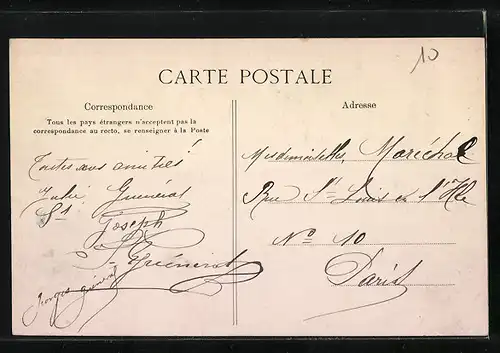 10
CARTE POSTALE
Correspondance
Tous les pays étrangers n'acceptent pas la
correspondance au recto, se renseigner à la Poste
Toutes nos amitiés!
Julie Guénérat
St
Joseph
Guénérat
Georges Guénérat
Adresse
Mesdemoiselles Maréchal
Rue St Louis en l'Ile
No 10
Paris